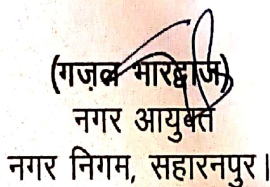 (गज़ल भारद्वाज)
नगर आयुक्त
नगर निगम, सहारनपुर।